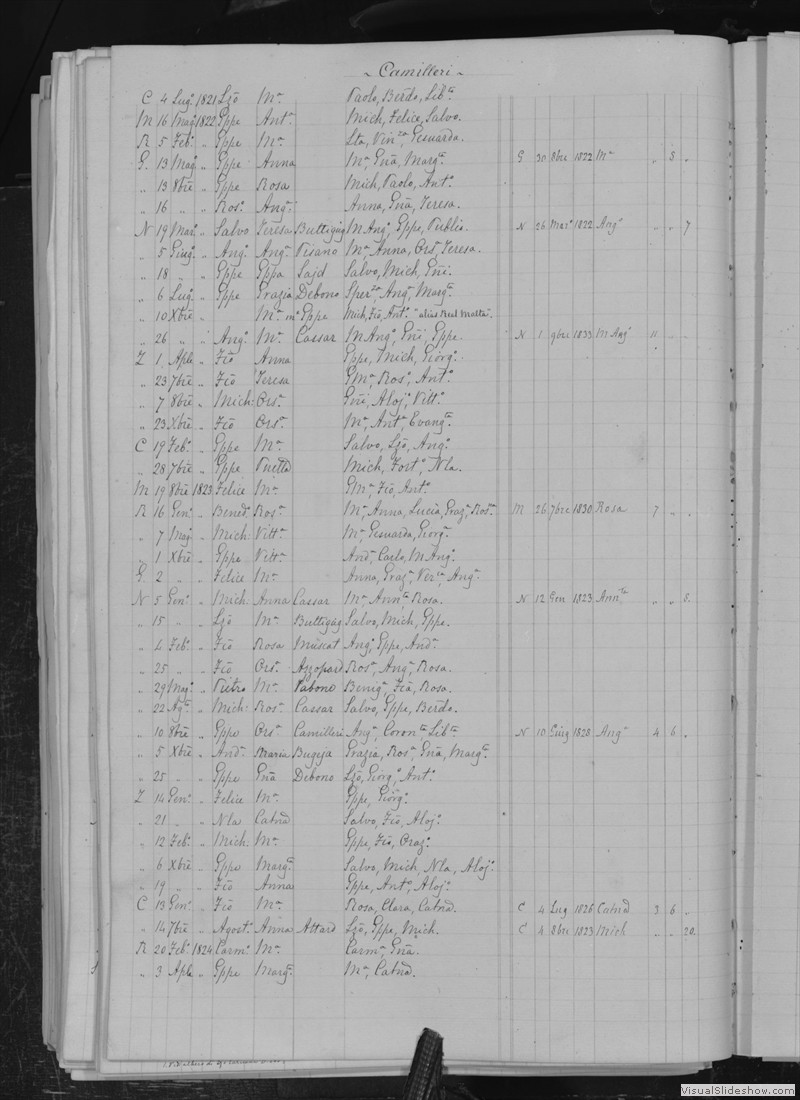 ~ Camilleri ~
C 4 Lugo 1821 Lzō Ma Paolo, Berdo, Liba
M 16 Mago 1822 Gppe Anta Mich, Felice, Salvo.
R 5 Febo „ Gppe Ma Lta, Vinza, Gesuarda.
G. 13 Mago „ Gppe Anna Ma, Gnā, Marga G 30 8bre 1822 Ma „ 5 „
„ 13 8bre „ Gppe Rosa Mich, Paolo, Anto
„ 16 „ „ Roso Anga Anna, Gnā, Teresa.
N 19 Maro „ Salvo Teresa Buttigieg M Anga, Gppe, Publio. N 26 Maro 1822 Anga „ „ 7
„ 5 Giugo „ Ango Anga Pisano Ma, Anna, Orsa, Teresa.
„ 18 „ „ Gppe Gppa Sajd Salvo, Mich, Gni.
„ 6 Lugo „ Gppe Grazia Debono Sperza, Anga, Marga
„ 10 Xbre Ma mo Gppe Mich, Fīo, Anto "alias Bel Malta".
„ 26 „ „ Ango Ma Cassar M Anga, Gni, Gppe. N 1 9bre 1833 M Anga 11 „ „
Z 1 Aple „ Fīo Anna Gppe, Mich, Giorgo
„ 23 7bre „ Fīo Teresa GMa, Roso, Anto
„ 7 8bre „ Mich: Orsa Gni, Alojo, Vitto
„ 23 Xbre „ Fīo Orsa Ma, Anta, Evangta
C 19 Febo „ Gppe Ma Salvo, Lzō, Ango
„ 28 7bre „ Gppe Mich, Forto, Nla.
M 19 8bre 1823 Felice Ma GMa, Fīo, Anto
R 16 Geno „ Benedo Rosa Ma, Anna, Lucia, Graza, Rosa M 26 7bre 1830 Rosa 7 „ „
„ 7 Mago „ Mich: Vitta Ma, Gesuarda, Giorga
„ 1 Xbre „ Gppe Vitta Anda, Carlo, M Anga
G. 2 „ „ Felice Ma Anna, Graza, Verca, Anga
N 5 Geno „ Mich: Anna Cassar Ma, Annta, Rosa. N 12 Gen 1823 Annta „ „ 8.
„ 15 „ „ Lzō Ma Buttigieg Salvo, Mich, Gppe.
„ 4 Febo „ Fīo Rosa Muscat Ango, Gppe, Anda
„ 25 „ „ Fīo Orsa Azzopard Rosa, Anga, Rosa.
„ 29 Mago „ Pietro Ma Pabono Beniga, Fīa, Rosa.
„ 22 Agto „ Mich: Rosa Cassar Salvo, Gppe, Berdo.
„ 10 8bre „ Gppe Orsa Camilleri Anga, Coronta, Liba N 10 Giug 1828 Anga 4 6 „
„ 5 Xbre „ Anda Maria Bugeja Grazia, Rosa, Gnā, Marga
„ 25 „ Gppe Gnā Debono Lzō, Giorgo, Anto
Z 14 Geno „ Felice Ma Gppe, Giorgo
„ 21 „ „ Nla Catna Salvo, Fīo, Alojo
„ 12 Febo „ Mich: Ma Gppe, Fīo, Orazo
„ 6 Xbre „ Gppe Marga Salvo, Mich, Nla, Alojo
„ 19 „ „ Fīo Anna Gppe, Anto, Alojo
C 13 Geno „ Fīo Ma Rosa, Clara, Catna. C 4 Lug 1826 Catna 3 6 „
„ 14 7bre „ Agosto Anna Attard Lzō, Gppe, Mich. C 4 8bre 1823 Mich „ „ 20.
R 20 Febo 1824 Carmo Ma Carma, Gnā.
„ 3 Aple „ Gppe Marga Ma, Catna.
VisualSlideshow.com